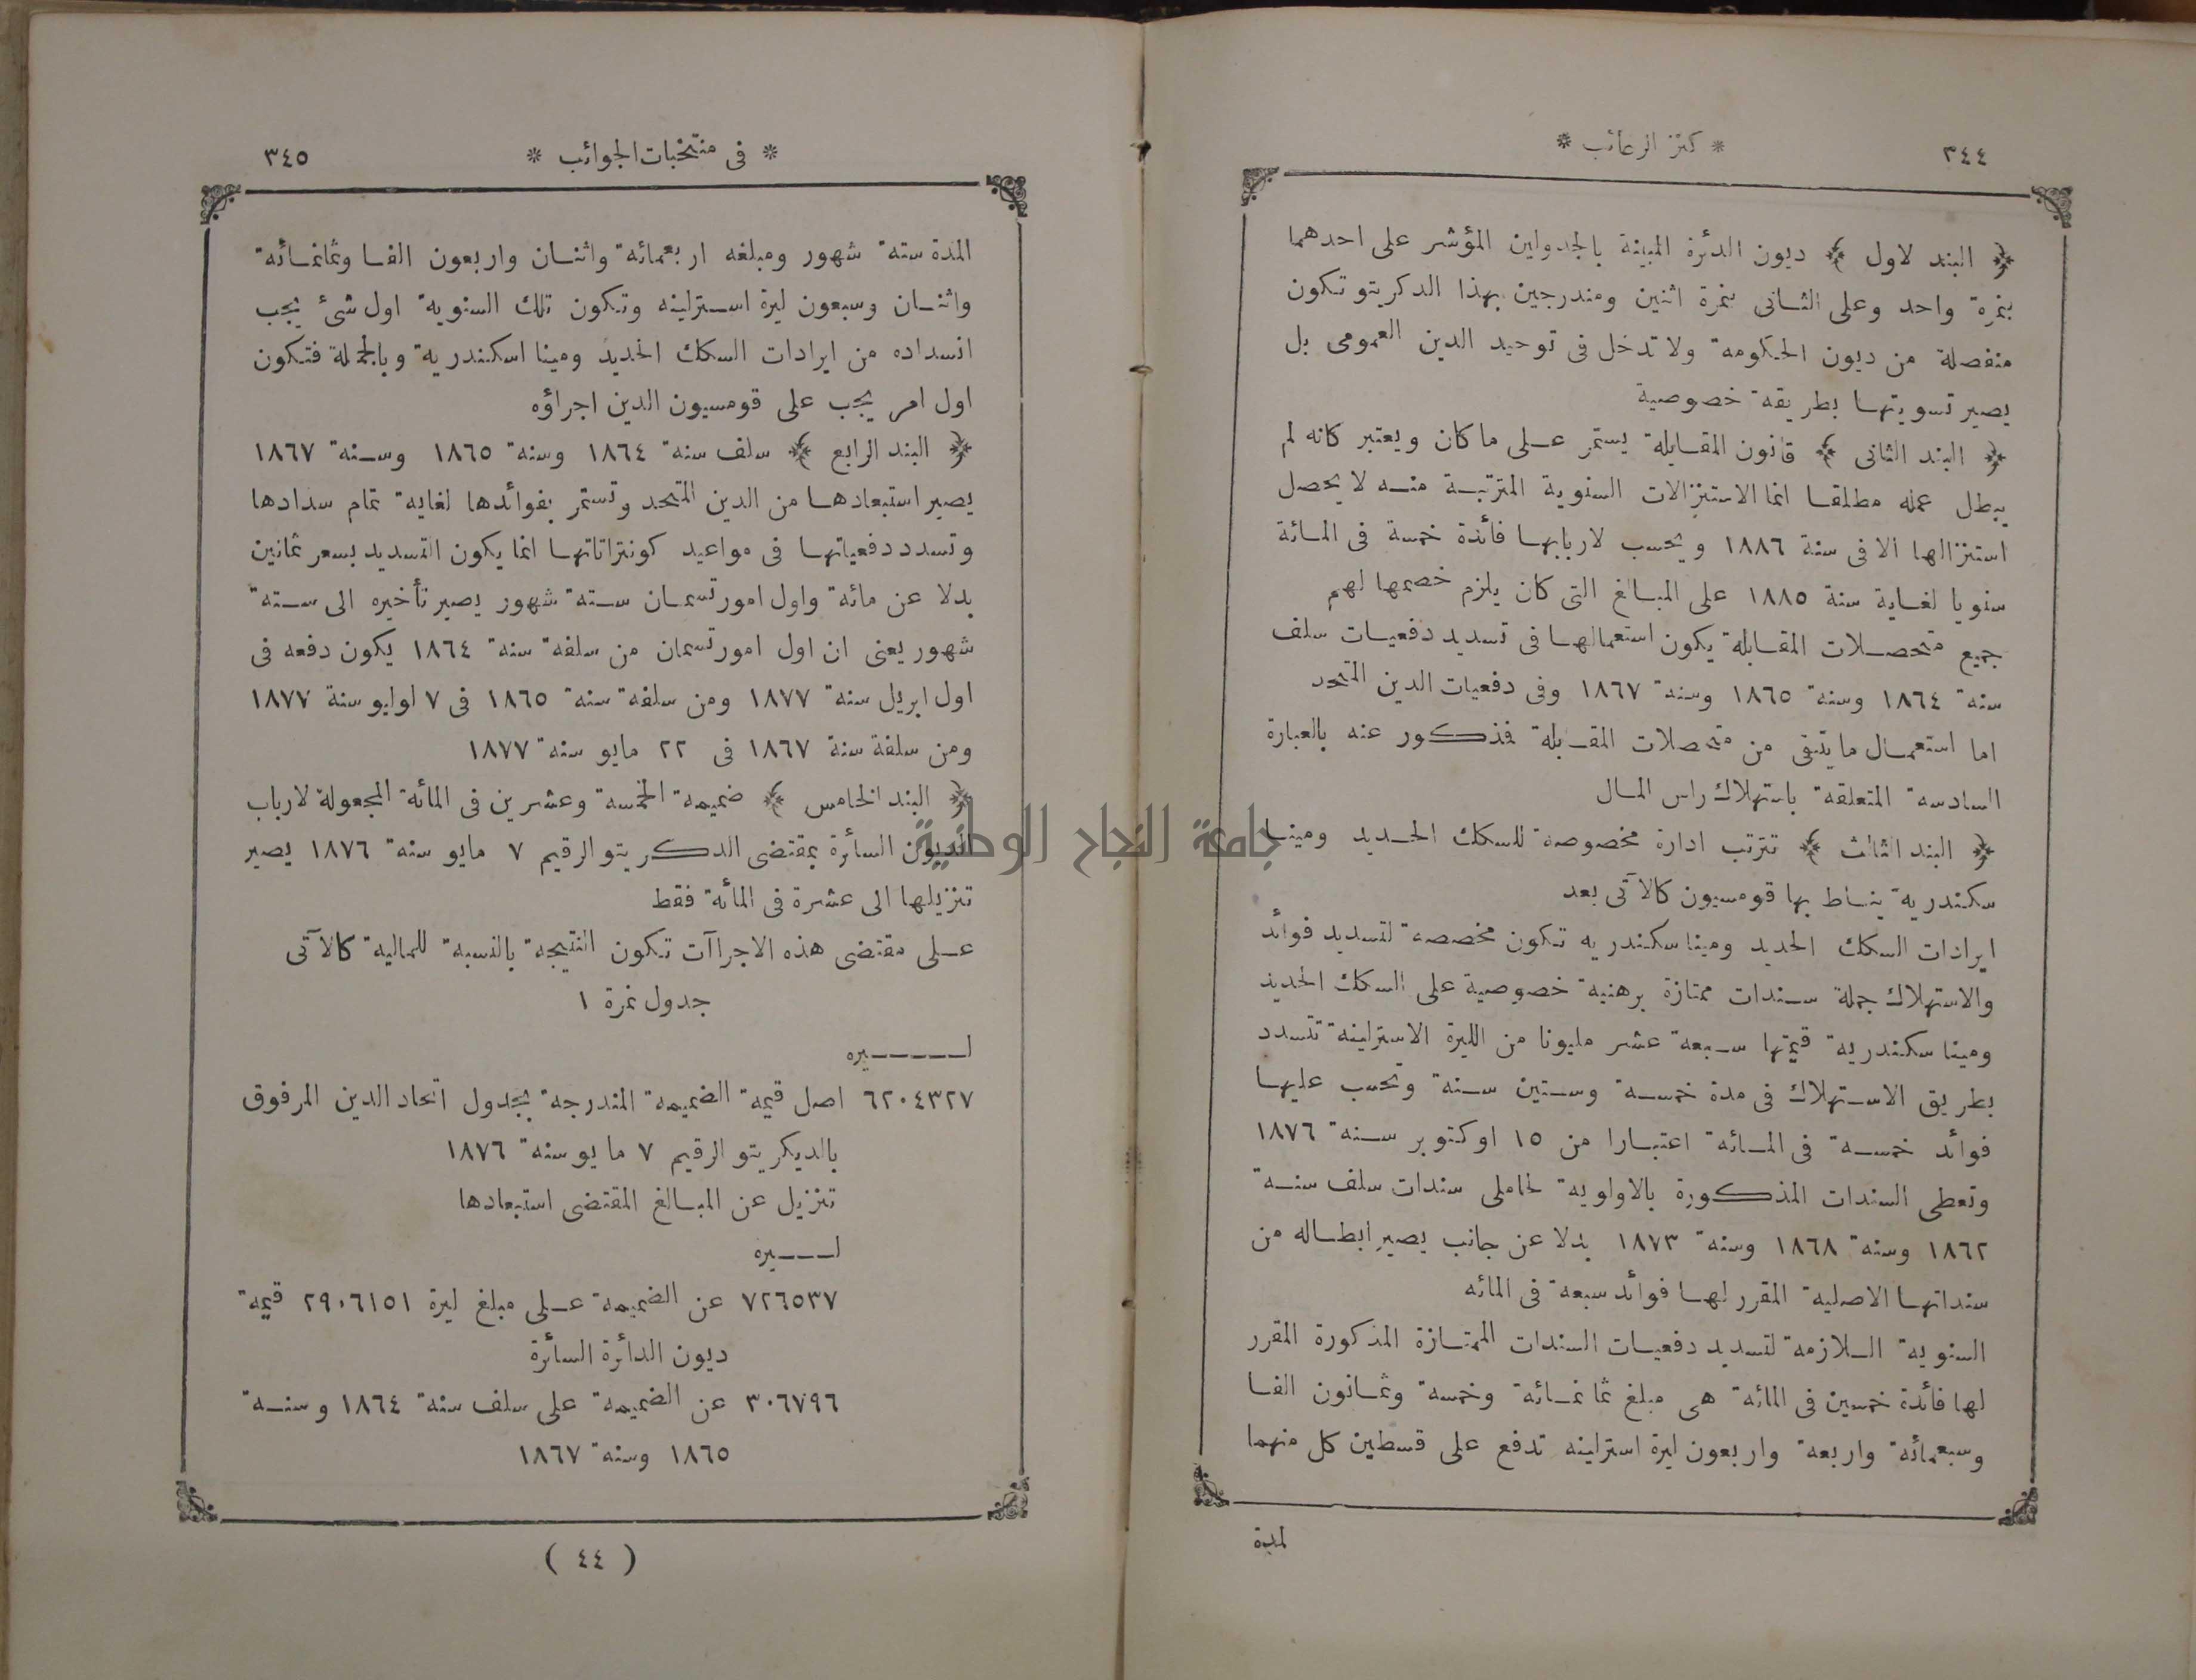 ٣٤٤
* كنز الرغائب *
﴿ البند لاول ﴾ ديون الدئرة المبينة بالجدولين المؤشر على احدهما
بنمرة واحد وعلى الثانى بنمرة اثنين ومندرجين بهذا الدكريتو تكون
منفصلة من ديون الحكومة ولا تدخل فى توحيد الدين العمومى بل
يصير تسويتها بطريقة خصوصية
﴿ البند الثانى ﴾ قانون المقابلة يستمر على ما كان ويعتبر كانه لم
يبطل عمله مطلقا انما الاستنزالات السنوية المترتبة منه لا يحصل
استنزالها الا فى سنة ١٨٨٦ ويحسب لاربابها فائدة خمسة فى المائة
سنويا لغاية سنة ١٨٨٥ على المبالغ التى كان يلزم خصمها لهم
جميع متحصلات المقابلة يكون استعمالها فى تسديد دفعيات سلف
سنة ١٨٦٤ وسنة ١٨٦٥ وسنة ١٨٦٧ وفى دفعيات الدين المتحد
اما استعمال ما يتبقى من متحصلات المقابلة فذكور عنه بالعبارة
السادسة المتعلقة باستهلاك راس المال
﴿ البند الثالث ﴾ تترتب ادارة مخصوصة للسكك الحديد ومينا
سكندرية يناط بها قومسيون كالآتى بعد
ايرادات السكك الحديد ومينا سكندريه تكون مخصصة لتسديد فوائد
والاستهلاك جملة سندات ممتازة برهنية خصوصية على السكك الحديد
ومينا سكندرية قيمتها سبعة عشر مليونا من الليرة الاسترلينة تتسدد
بطريق الاستهلاك فى مدة خمسة وستين سنة وتحسب عليها
فوائد خمسة فى المائة اعتبارا من ١٥ اوكتوبر سنة ١٨٧٦
وتعطى السندات المذكورة بالاولوية لحاملى سندات سلف سنة
١٨٦٢ وسنة ١٨٦٨ وسنة ١٨٧٣ بدلا عن جانب يصير ابطاله من
سنداتها الاصلية المقرر لها فوائد سبعة فى المائه
السنوية اللازمة لتسديد دفعيات السندات الممتازة المذكورة المقرر
لها فائدة خمسين فى المائة هى مبلغ ثمانمائة وخمسة وثمانون الفا
وسبعمائة واربعة واربعون ليرة استرلينه تدفع على قسطين كل منهما
لمدة
* فى منتخبات الجوائب *
٣٤٥
المدة ستة شهور ومبلغه اربعمائة واثنان واربعون الفا وثمانمائة
واثنان وسبعون ليرة استرلينه وتكون تلك السنوية اول شئ يجب
انسداده من ايرادات السكك الحديد ومينا اسكندرية وبالجملة فتكون
اول امر يجب على قومسيون الدين اجراؤه
﴿ البند الرابع ﴾ سلف سنة ١٨٦٤ وسنة ١٨٦٥ وسنة ١٨٦٧
يصير استبعادها من الدين المتحد وتستمر بفوائدها لغاية تمام سدادها
وتسدد دفعياتها فى مواعيد كونتراتاتها انما يكون التسديد بسعر ثمانين
بدلا عن مائة واول امورتسمان ستة شهور يصير تأخيره الى ستة
شهور يعنى ان اول امورتسمان من سلفة سنة ١٨٦٤ يكون دفعه فى
اول ابريل سنة ١٨٧٧ ومن سلفة سنة ١٨٦٥ فى ٧ لوايو سنة ١٨٧٧
ومن سلفة سنة ١٨٦٧ فى ٢٢ مايو سنة ١٨٧٧
﴿ البند الخامس ﴾ ضميمة الخمسة وعشرين فى المائة المجعولة لارباب
الديون السائرة بمقتضى الدكريتو الرقيم ٧ مايو سنة ١٨٧٦ يصير
تنزيلها الى عشرة فى المائة فقط
على مقتضى هذه الاجراآت تكون النتيجة بالنسبة للمالية كالآتى
جدول نمرة ١
ليره
٦٢٠٤٣٢٧ اصل قيمة الضميمة المندرجة بجدول اتحاد الدين المرفوق
بالديكريتو الرقيم ٧ مايو سنة ١٨٧٦
تنزيل عن المبالغ المقتضى استبعادها
ليره
٧٢٦٥٣٧ عن الضميمة على مبلغ ليرة ٢٩٠٦١٥١ قيمة
ديون الدائرة السائرة
٣٠٦٧٩٦ عن الضميمة على سلف سنة ١٨٦٤ وسنة
١٨٦٥ وسنة ١٨٦٧
( ٤٤ )
جامعة النجاح الوطنية